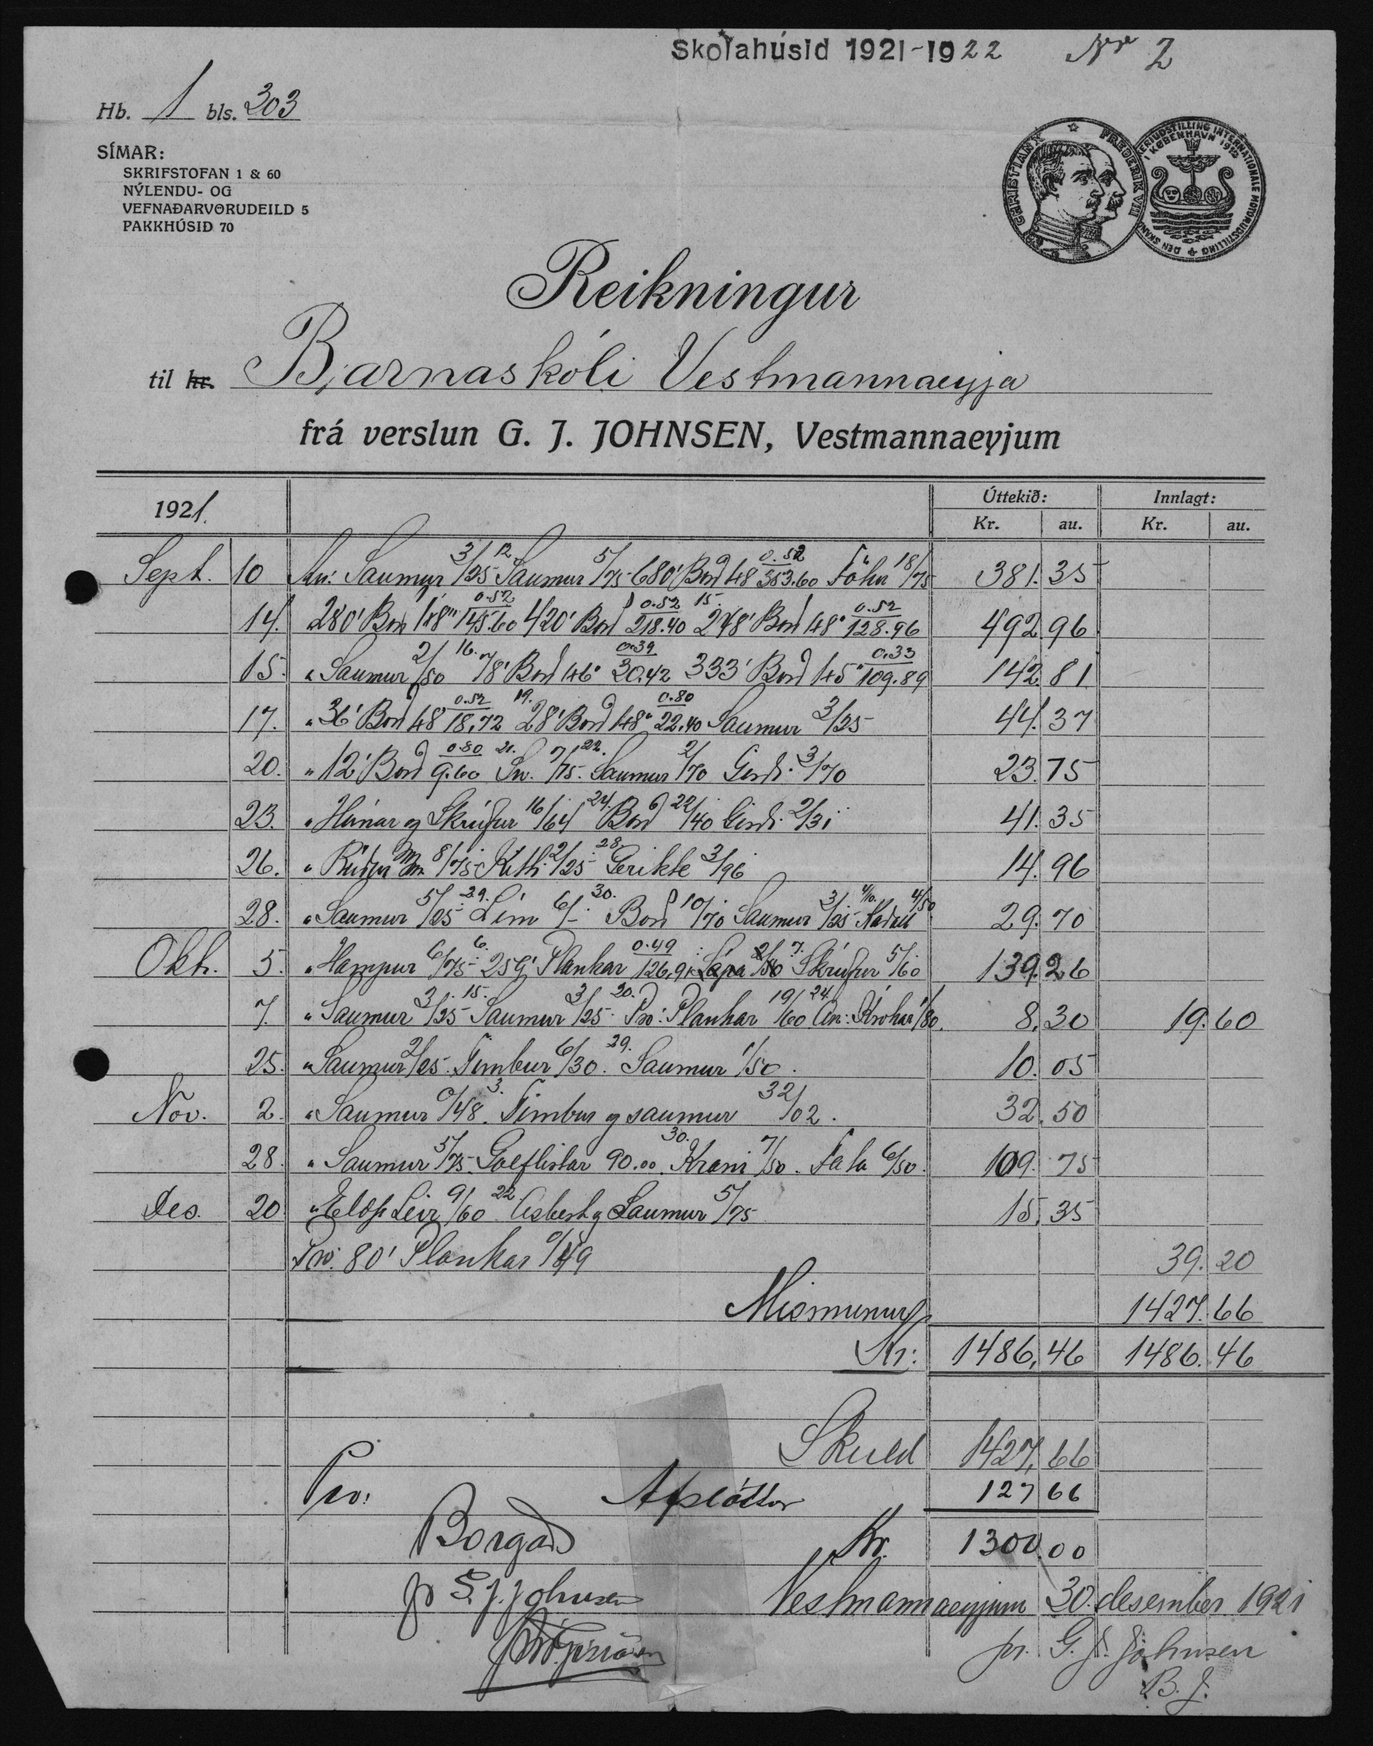 Skólahúsið 1921-1922 Nr 2
Hb. 1 bls. 303
SÍMAR:
SKRIFSTOFAN 1 & 60
NÝLENDU- OG
VEFNAÐARVÖRUDEILD 5
PAKKHÚSIÐ 70
CHRISTIAN X FREDERIK VIII
Reikningur
til hr. Barnaskóli Vestmannaeyja
frá verslun G. J. JOHNSEN, Vestmannaeyjum
1921. Úttekið: Innlagt:
Kr. au. Kr. au.
Sept. 10 An: Saumur 3/25 12. Saumur 5/75 680' Borð 48 0.52 353.60 18/75 381.35
14. 280' Borð 48" 0.52 145.60 420' Borð 0.52 218.40 15. 248' Borð 48" 0.52 128.96 492.96
15. " Saumur 2/50 16. 78' Borð 46" 0.39 30.42 333' Borð 45" 0.33 109.89 142.81
17. " 36' Borð 48" 0.52 18.72 19. 28' Borð 48" 0.80 22.40 Saumur 3/25 44.37
20. " 12' Borð 0.80 9.60 21. 7/75 22. Saumur 2/70 3/70 23.75
23. " Húnar og Skrúfur 16/64 24. Borð 22/40 2/31 41.35
26. " 8/75 Kitti 2/25 28. 3/96 14.96
28. " Saumur 5/25 29. Lím 6/- 30. Borð 10/70 Saumur 3/25 4/10. 4/50 29.70
Okt. 5. " Hampur 6/75 6. 259' Plankar 0.49 126.91 7. Skrúfur 5/60 139.26
7. " Saumur 3/25 15. Saumur 3/25 20. Pr: Plankar 19/60 24. An: Krókar 1/80. 8.30 19.60
25. " Saumur 2/25 Timbur 6/30. 29. Saumur 1/50. 10.05
Nov. 2. " Saumur 0/48. 3. Timbur og saumur 32/02. 32.50
28. " Saumur 5/75 Gólflistar 90.00 30. Krani 7/50. Fata 6/50. 109.75
Des. 20 " Eldf. Leir 9/60 22. Asbest og Saumur 5/75 15.35
Pr: 80' Plankar 0/49 39.20
Mismunur 1427.66
Kr: 1486.46 1486.46
Skuld 1427.66
Pr: Afsláttur 127 66
Borgað Kr. 1300.00
pr G. J. Johnsen Vestmannaeyjum 30. desember 1921
pr. G. J. Johnsen
B. J.